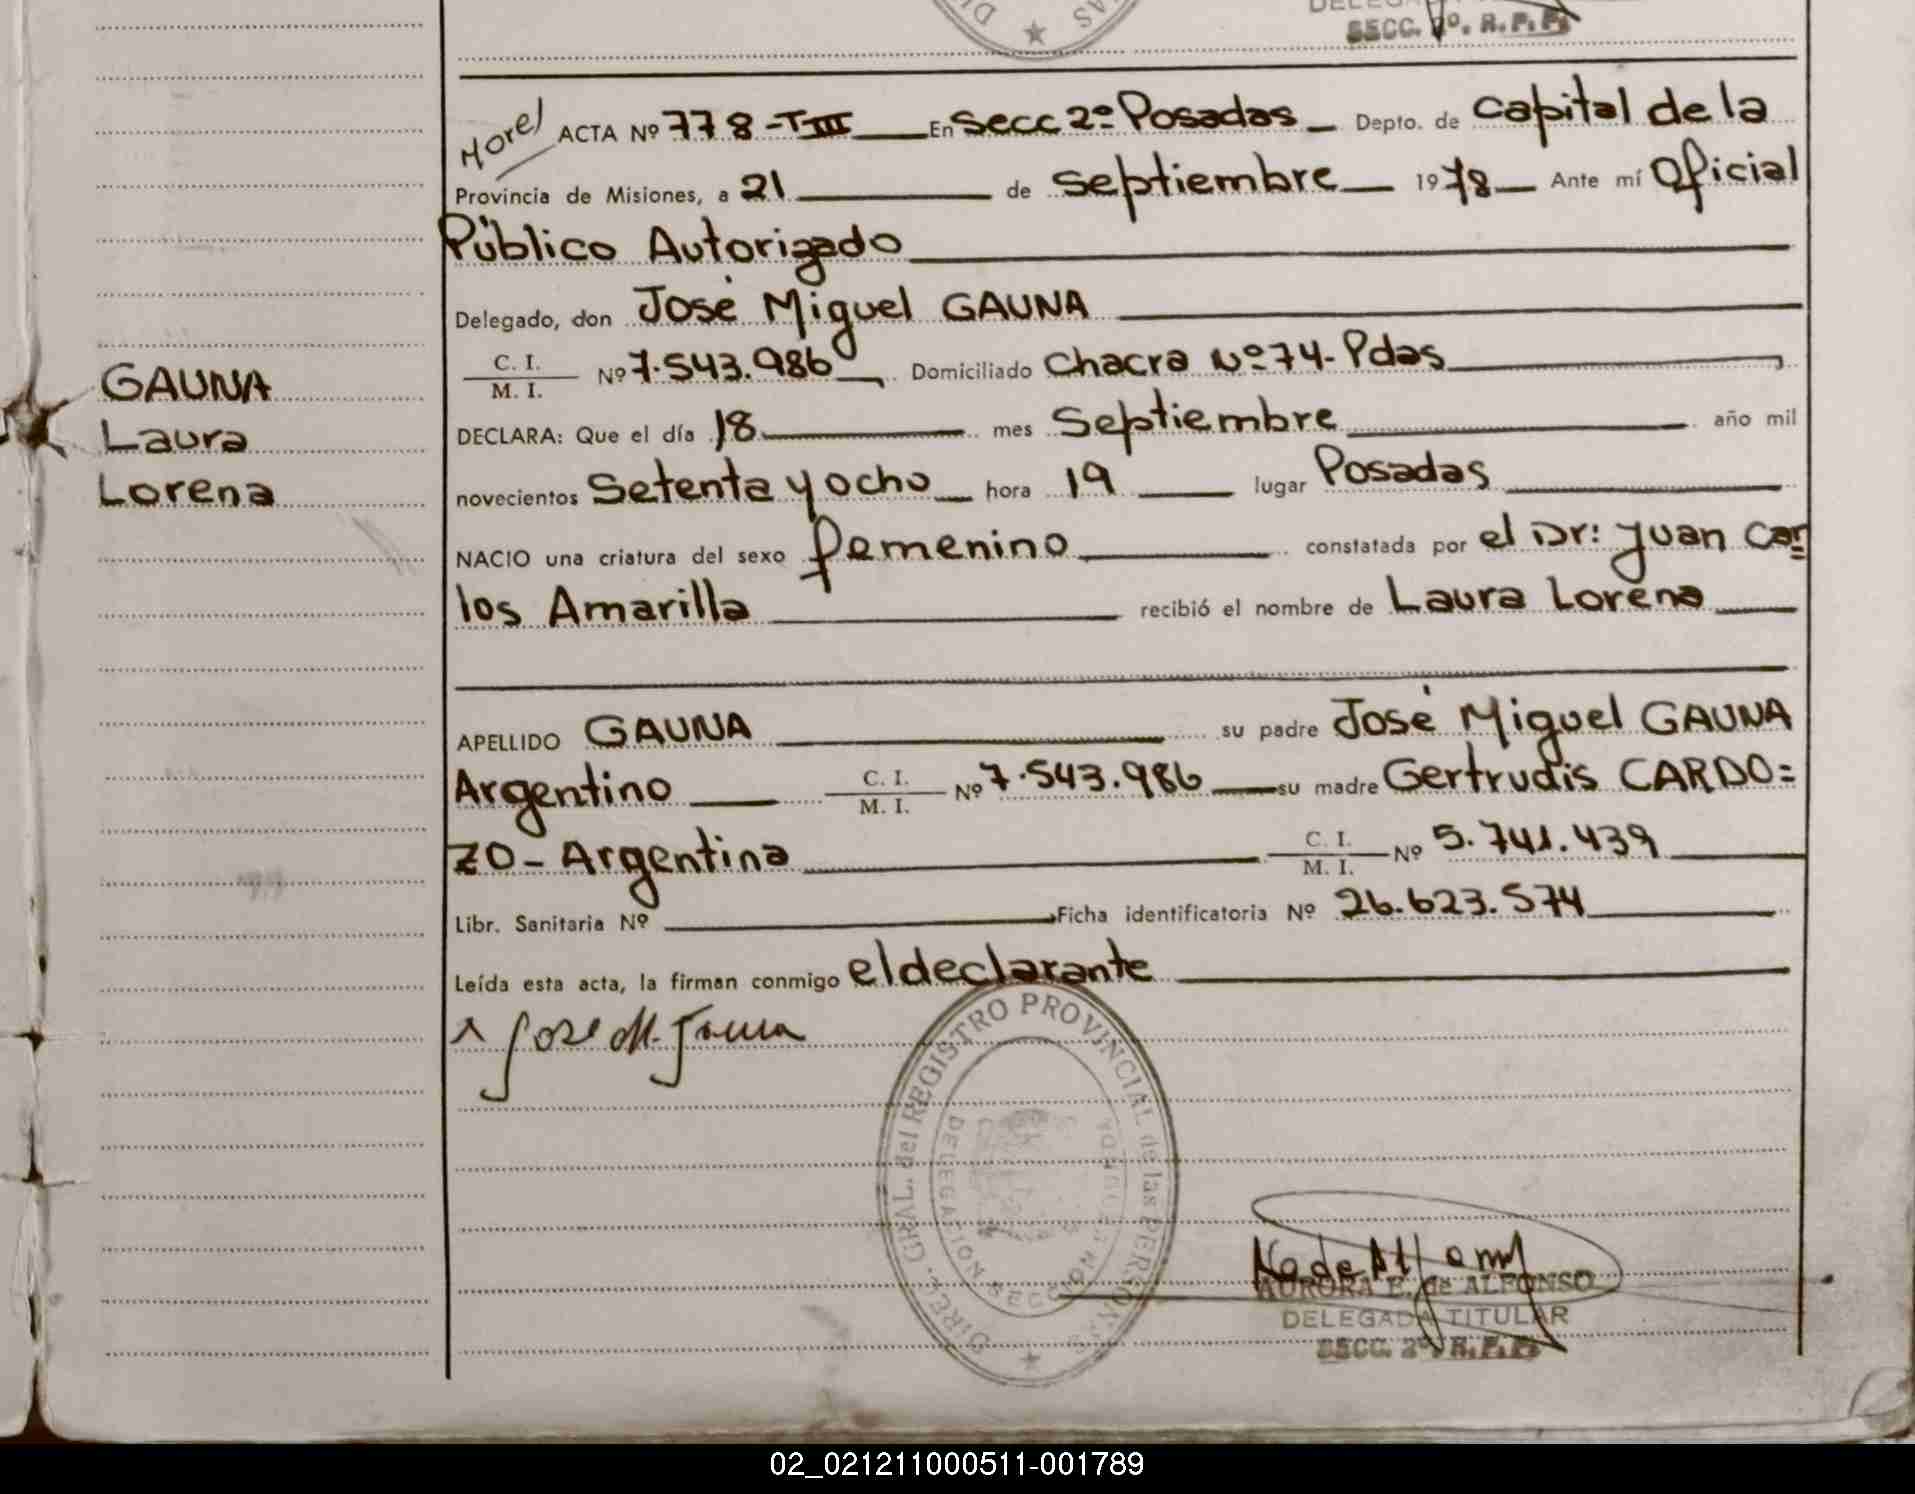 SECC. 2º. R.P.P.
Morel ACTA Nº 778-TIII En Secc 2º Posadas Depto. de Capital de la
Provincia de Misiones, a 21 de Septiembre 1978 Ante mí Oficial
Público Autorizado
Delegado, don José Miguel GAUNA
C. I.
M. I. Nº 7.543.986 Domiciliado Chacra Nº 74- Pdas
GAUNA
Laura
Lorena
DECLARA: Que el día 18 mes Septiembre año mil
novecientos Setenta y ocho hora 19 lugar Posadas
NACIO una criatura del sexo femenino constatada por el Dr: Juan Car=
los Amarilla recibió el nombre de Laura Lorena
APELLIDO GAUNA su padre José Miguel GAUNA
Argentino C. I. M. I. Nº 7.543.986 su madre Gertrudis CARDO=
ZO - Argentina C. I. M. I. Nº 5.741.439
Libr. Sanitaria Nº Ficha identificatoria Nº 26.623.574
Leída esta acta, la firman conmigo el declarante
Jose M. Gauna
DIREC. GRAL. del REGISTRO PROVINCIAL de las PERSONAS
DELEGACION SEGUNDA
AURORA E. de ALFONSO
DELEGADA TITULAR
SECC. 2º. R.P.P.
02_021211000511-001789